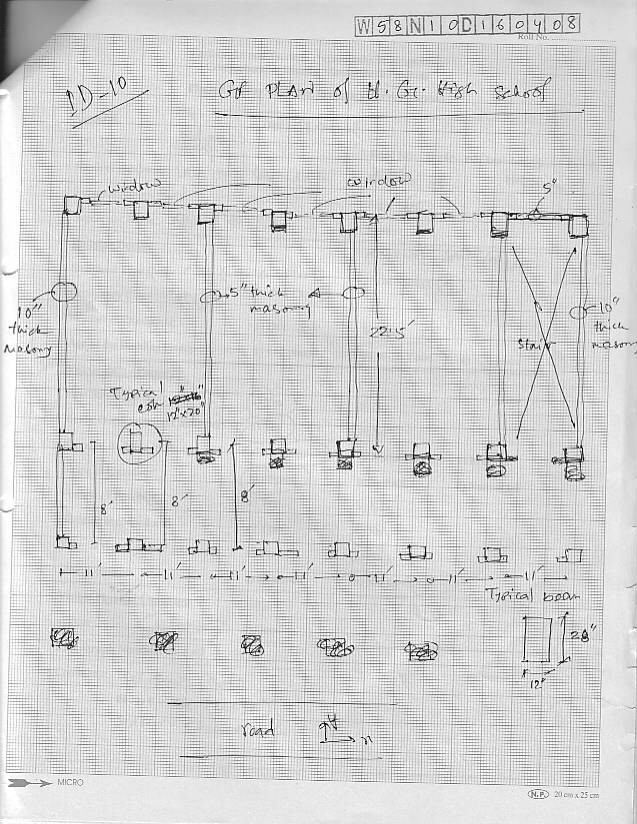 W58N10C160408
Roll No.
ID-10
GF PLAN of H. Gr. High School
window
window
5"
10"
thick
masonry
5" thick
masonry
22.5'
10"
thick
masonry
Stair
Typical
12"x20"
8'
8'
8'
11' 11' 11' 11' 11' 11' 11'
Typical beam
28"
12"
road
MICRO
N.P. 20 cm x 25 cm